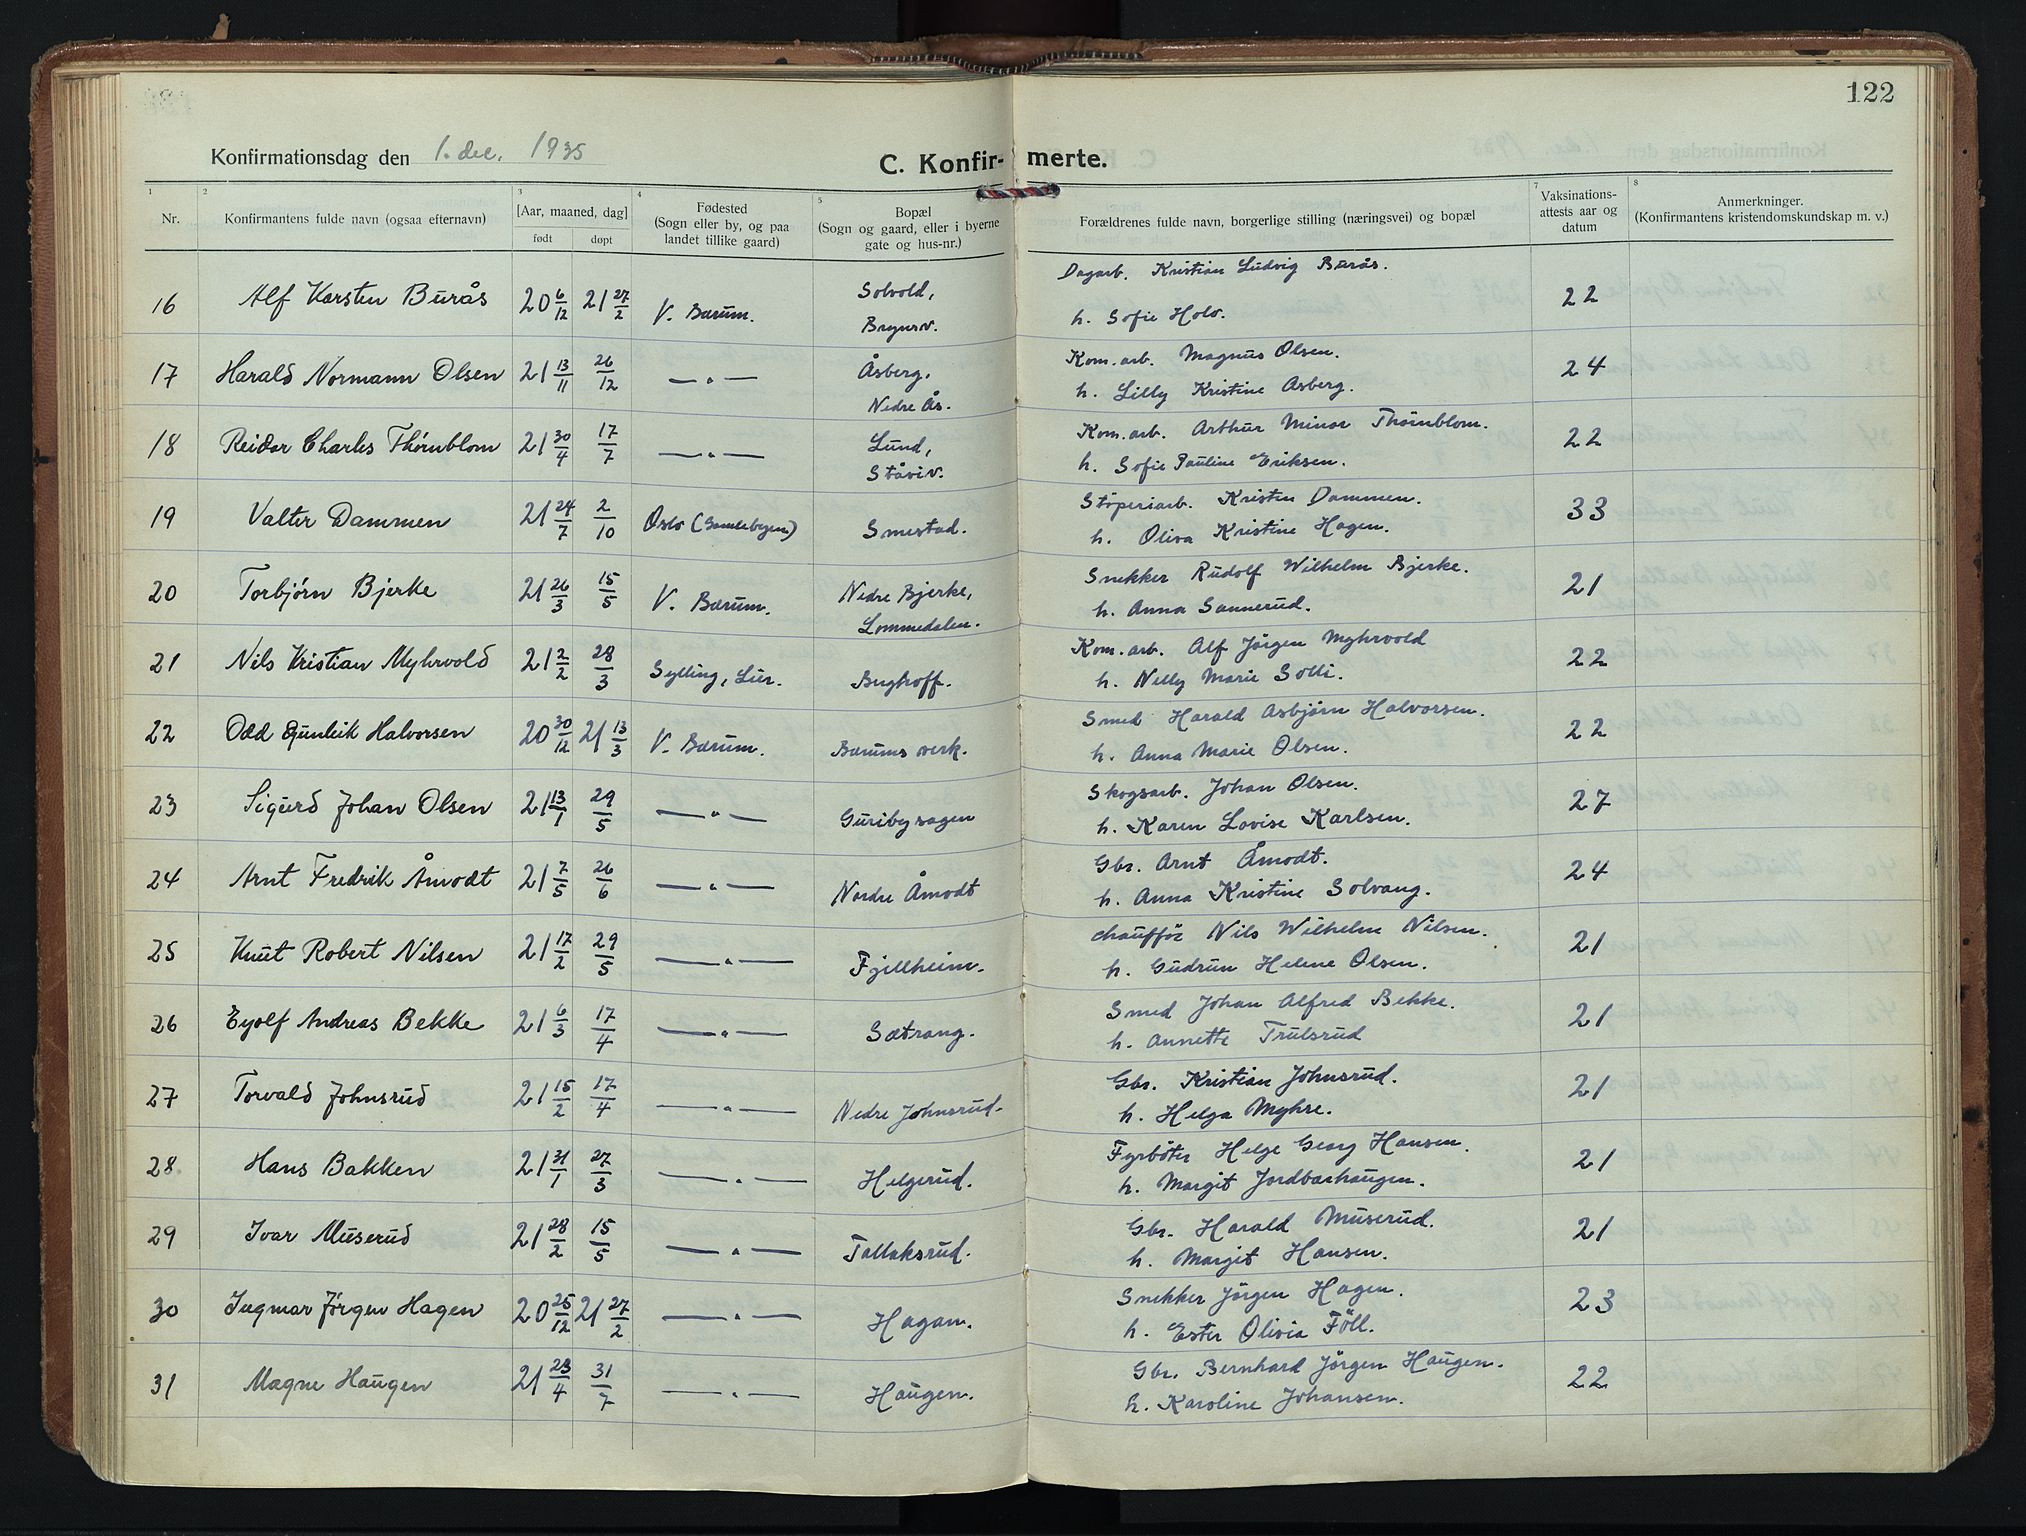 122
Konfirmationsdag den 1. dec. 1935
C. Konfir- merte.
1 2 3 4 5 7 8
Nr. Konfirmantens fulde navn (ogsaa efternavn) [Aar, maaned, dag] født døpt Fødested (Sogn eller by, og paa landet tillike gaard) Bopæl (Sogn og gaard, eller i byerne gate og hus-nr.) Forældrenes fulde navn, borgerlige stilling (næringsvei) og bopæl Vaksinations-attests aar og datum Anmerkninger. (Konfirmantens kristendomskundskap m. v.)
16 Alf Karsten Burås 20 6/12 21 27/2 V. Bærum. Solvold, Brynsv. Dagarb. Kristian Ludvig Burås. 22
h. Sofie Holv.
17 Harald Normann Olsen 21 13/11 26/12 — " — Åsberg, Nedre Ås. Kom. arb. Magnus Olsen. 24
h. Lilly Kristine Asberg.
18 Reidar Charles Thørnblom 21 30/4 17/7 — " — Lund, Ståviv. Kom. arb. Arthur Minor Thørnblom. 22
h. Sofie Pauline Eriksen.
19 Valter Dammen 21 24/7 2/10 Oslo (Gamlebyen) Smestad. Støperiarb. Kristen Dammen. 33
h. Oliva Kristine Hagen.
20 Torbjørn Bjerke 21 26/3 15/5 V. Bærum. Nedre Bjerke, Lommedalen. Snekker Rudolf Wilhelm Bjerke. 21
h. Anna Sannerud.
21 Nils Kristian Myhrvold 21 2/2 28/3 Sylling, Lier. Berghoff. Kom. arb. Alf Jørgen Myhrvold 22
h. Nelly Marie Solli.
22 Odd Gunleik Halvorsen 20 30/12 21 13/3 V. Bærum. Bærums verk. Smed Harald Asbjørn Halvorsen. 22
h. Anna Marie Olsen.
23 Sigurd Johan Olsen 21 13/1 29/5 — " — Guribysagen Skogsarb. Johan Olsen. 27
h. Karen Lovise Karlsen.
24 Arnt Fredrik Åmodt 21 7/5 26/6 — " — Nordre Åmodt Gbr. Arnt Åmodt. 24
h. Anna Kristine Solvang.
25 Knut Robert Nilsen 21 17/2 29/5 — " — Fjellheim. chauffør Nils Wilhelm Nilsen. 21
h. Gudrun Helene Olsen.
26 Eyolf Andreas Bekke 21 6/3 17/4 — " — Sætrang. Smed Johan Alfred Bekke. 21
h. Annette Trulsrud
27 Torvald Johnsrud 21 15/2 17/4 — " — Nedre Johnsrud. Gbr. Kristian Johnsrud. 21
h. Helga Myhre.
28 Hans Bakken 21 31/1 27/3 — " — Helgerud. Fyrbøter Helge Georg Hansen. 21
h. Margit Jordbærhaugen.
29 Ivar Muserud 21 28/2 15/5 — " — Tallaksrud. Gbr. Harald Muserud. 21
h. Margit Hansen.
30 Ingmar Jørgen Hagen 20 25/12 21 27/2 — " — Hagan. Snekker Jørgen Hagen. 23
h. Ester Olivia Föll.
31 Magne Haugen 21 23/4 31/7 — " — Haugen. Gbr. Bernhard Jørgen Haugen. 22
h. Karoline Johansen.